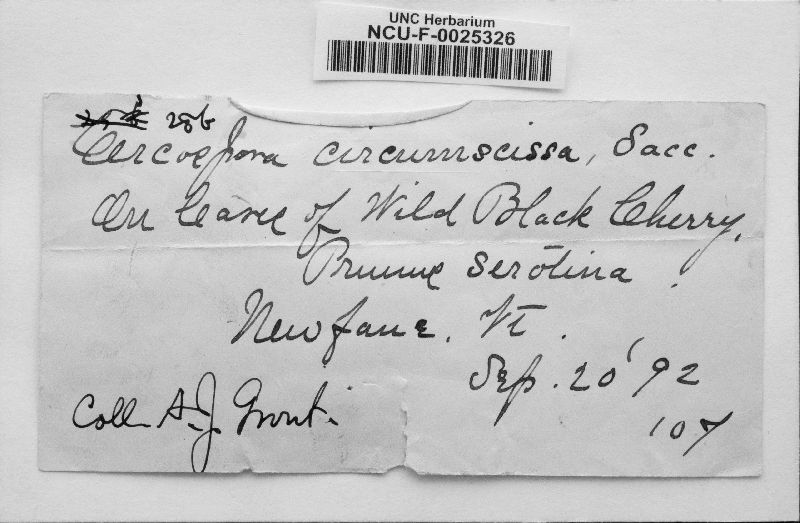 UNC Herbarium
NCU-F-0025326
286
Cercospora circumscissa, Sacc.
On leaves of Wild Black Cherry,
Prunus serotina.
Newfane, Vt.
Sep. 20 '92
Coll. A. J. Grout.
107